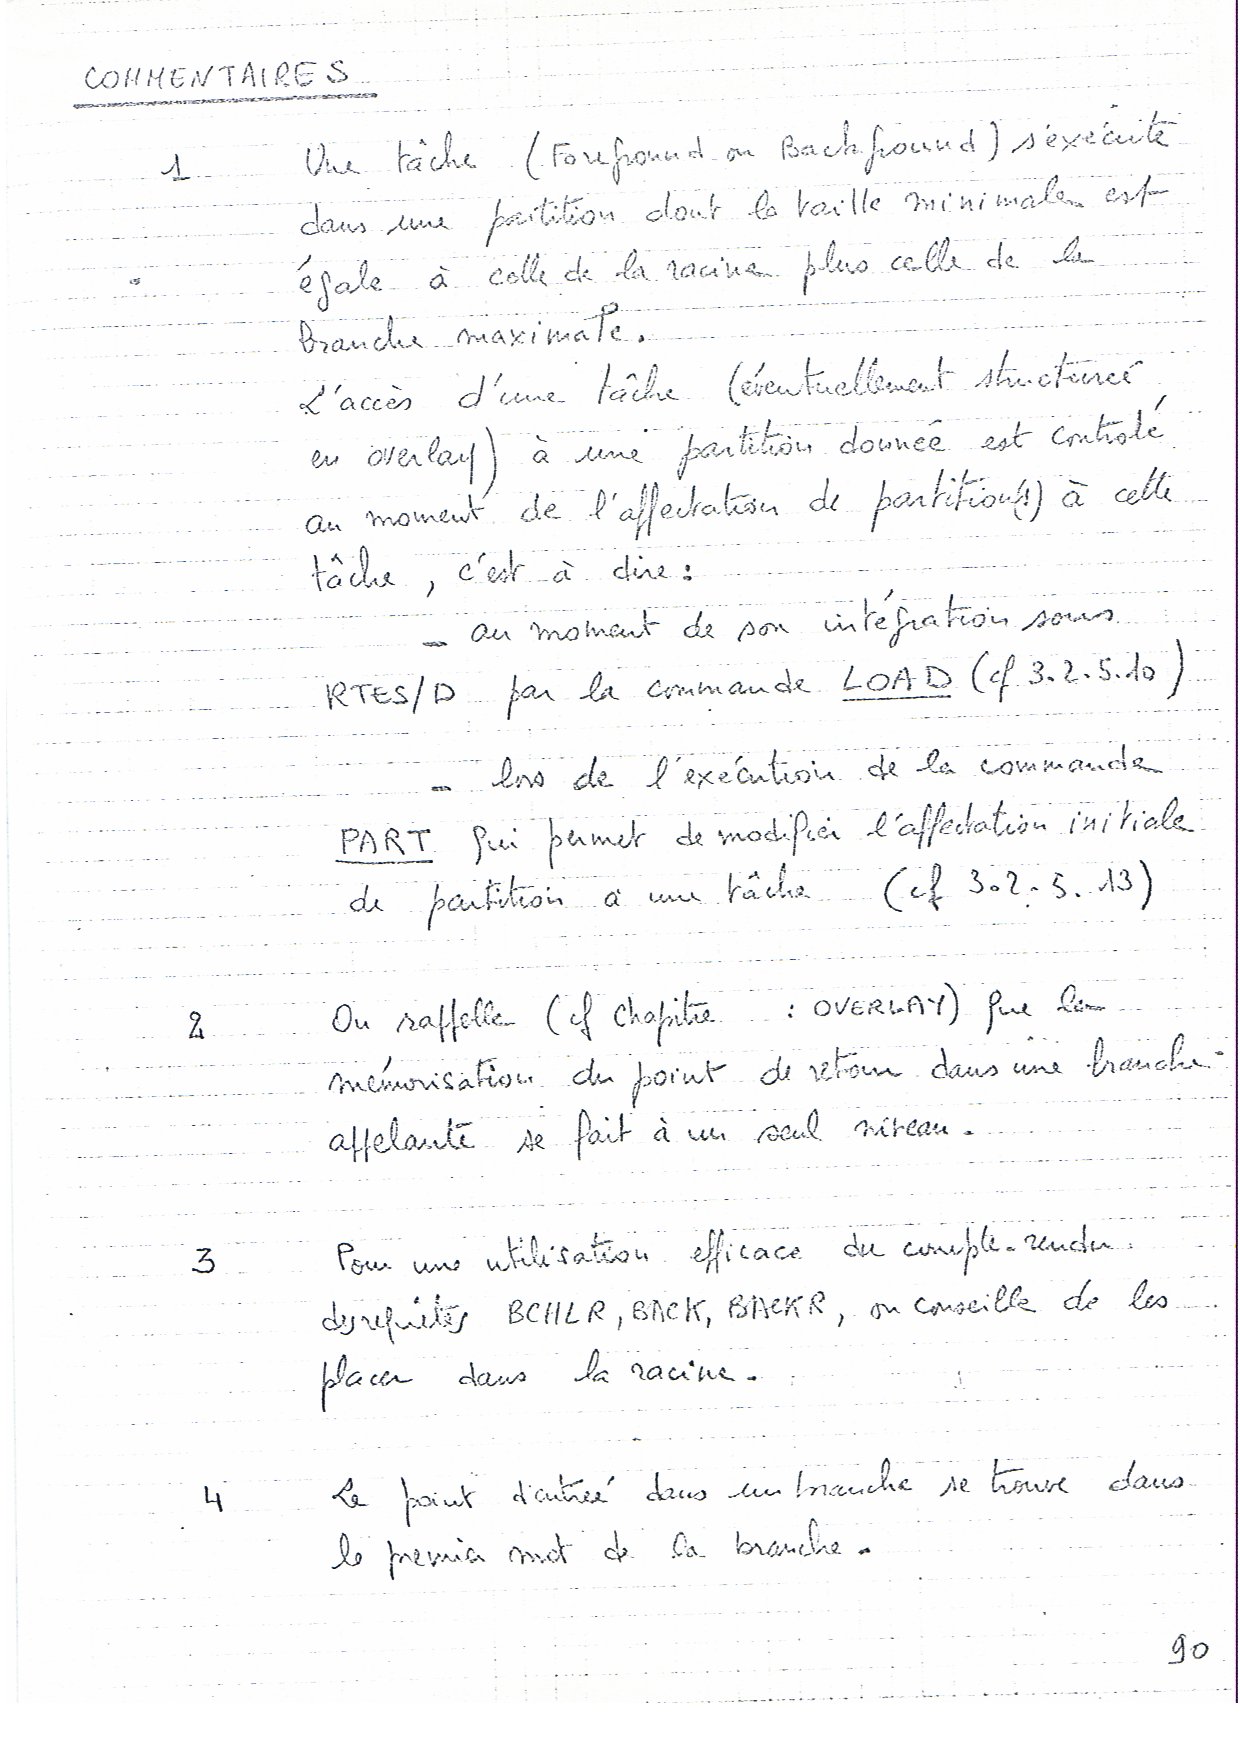 COMMENTAIRES
1 Une tâche (Foreground ou Background) s'exécute
dans une partition dont la taille minimale est
égale à celle de la racine plus celle de la
branche maximale.
L'accès d'une tâche (éventuellement structurée
en overlay) à une partition donnée est contrôlé
au moment de l'affectation de partition(s) à cette
tâche, c'est à dire :
- au moment de son intégration sous
RTES/D par la commande LOAD (cf 3.2.5.10)
- lors de l'exécution de la commande
PART qui permet de modifier l'affectation initiale
de partition à une tâche (cf 3.2.5.13)
2 On rappelle (cf Chapitre : OVERLAY) que la
mémorisation du point de retour dans une branche
appelante se fait à un seul niveau.
3 Pour une utilisation efficace du compte-rendu
des requêtes BCHLR, BACK, BACKR, on conseille de les
placer dans la racine.
4 Le point d'entrée dans un branche se trouve dans
le premier mot de la branche.
90